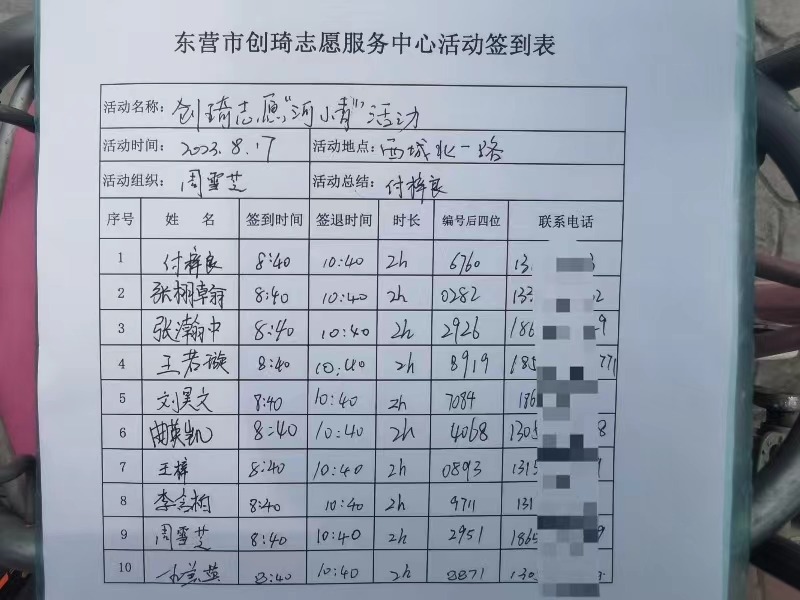 东营市创琦志愿服务中心活动签到表
活动名称: 创琦志愿“河小青”活动
活动时间: 2023.8.17 活动地点: 西城北一路
活动组织: 周雪芝 活动总结: 付梓良
序号 姓 名 签到时间 签退时间 时长 编号后四位 联系电话
1 付梓良 8:40 10:40 2h 6760 13 3
2 张栩翰 8:40 10:40 2h 0282 133 2
3 张瀚中 8:40 10:40 2h 2926 186 9
4 王若璇 8:40 10:40 2h 8919 185 771
5 刘昊文 8:40 10:40 2h 7084 186
6 曲英凯 8:40 10:40 2h 4068 1305 8
7 王梓 8:40 10:40 2h 0893 1315
8 李言柏 8:40 10:40 2h 9711 131
9 周雪芝 8:40 10:40 2h 2951 1865 9
10 8:40 10:40 2h 8871 130